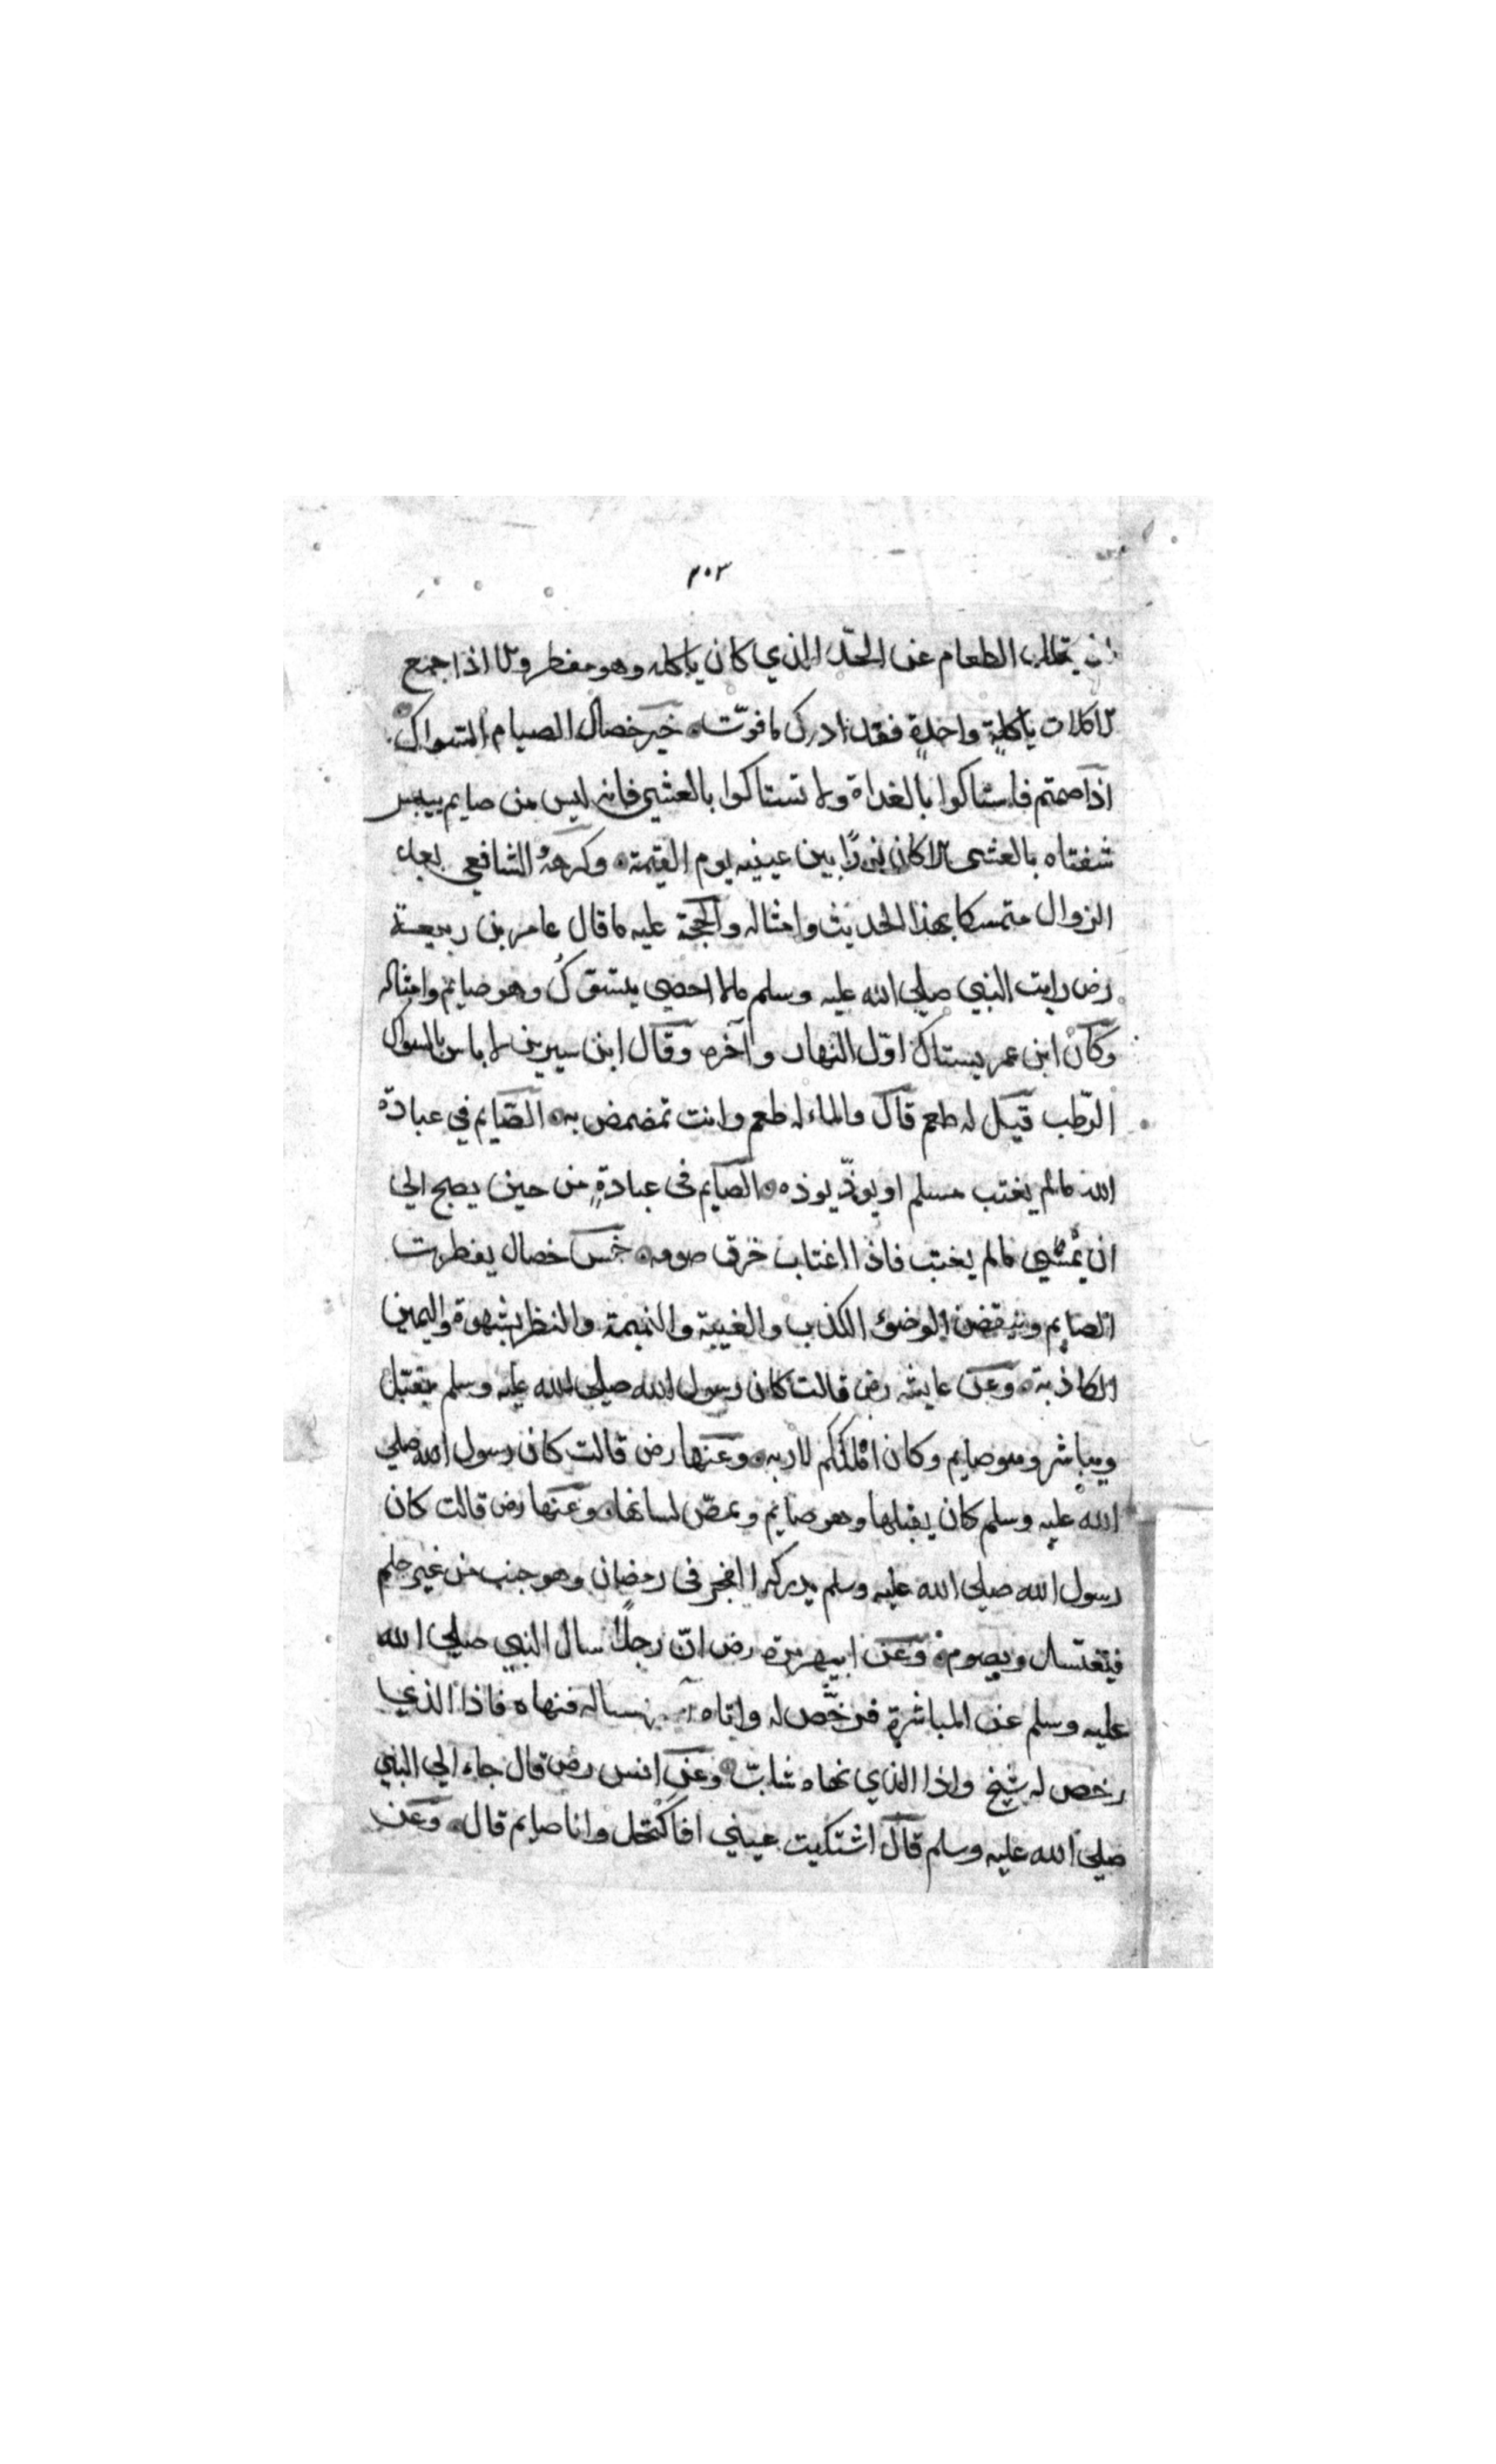 ٢٠٣
يقلل الطعام عن الحدّ الذي كان ياكله وهو مفطر والا اذا جمع
الاكلات باكلةٍ واحدةٍ فقد ادرك ما فوّت خير خصال الصيام السواك
اذا صمتم فاستاكوا بالغداة ولا تستاكوا بالعشي فانه ليس من صايم ييبس
شفتاه بالعشى الا كان نورًا بين عينيه يوم القيمة وكرهه الشافعي بعد
الزوال متمسكا بهذا الحديث وامثاله والحجة عليه ما قال عامر بن ربيعة
رض رايت النبي صلي الله عليه وسلم مالا احصي يتسوّكُ وهو صايم وامثاله
وكان ابن عمر يستاك اوّل النهار وآخره وقال ابن سيرين لا باس بالسواك
الرّطب قيل له طعم قال والماء له طعم وانت تمضمض به الصّايم في عبادة
الله مالم يغتب مسلم او يوذّيوذه الصايم فى عبادةٍ من حين يصبح الي
ان يمسي مالم يغتب فاذا اغتاب خرق صومه خمس خصال يفطرن
الصايم وينقضن الوضوء الكذب والغيبة والنميمة والنظر بشهوة واليمين
الكاذبة وعن عايشه رض قالت كان رسول الله صلي الله عليه وسلم يقبّل
ويباشر وهو صايم وكان املككم لاربه وعنها رض قالت كان رسول الله صلي
الله عليه وسلم كان يقبلها وهو صايم ويمصّ لسانها وعنها رض قالت كان
رسول الله صلي الله عليه وسلم يدركه الفجر فى رمضان وهو جنب من غير حلم
فيغتسل ويصوم وعن ابيهريرة رض انّ رجلاً سال النبي صلي الله
عليه وسلم عن المباشرة فرخّص له واتاه آخر فساله فنهاه فاذا الذي
رخص له شيخ واذا الذي نهاه شابّ وعن انس رض قال جاء الي النبي
صلي الله عليه وسلم قال اشتكيت عيني افاكتحل وانا صايم قال وعن